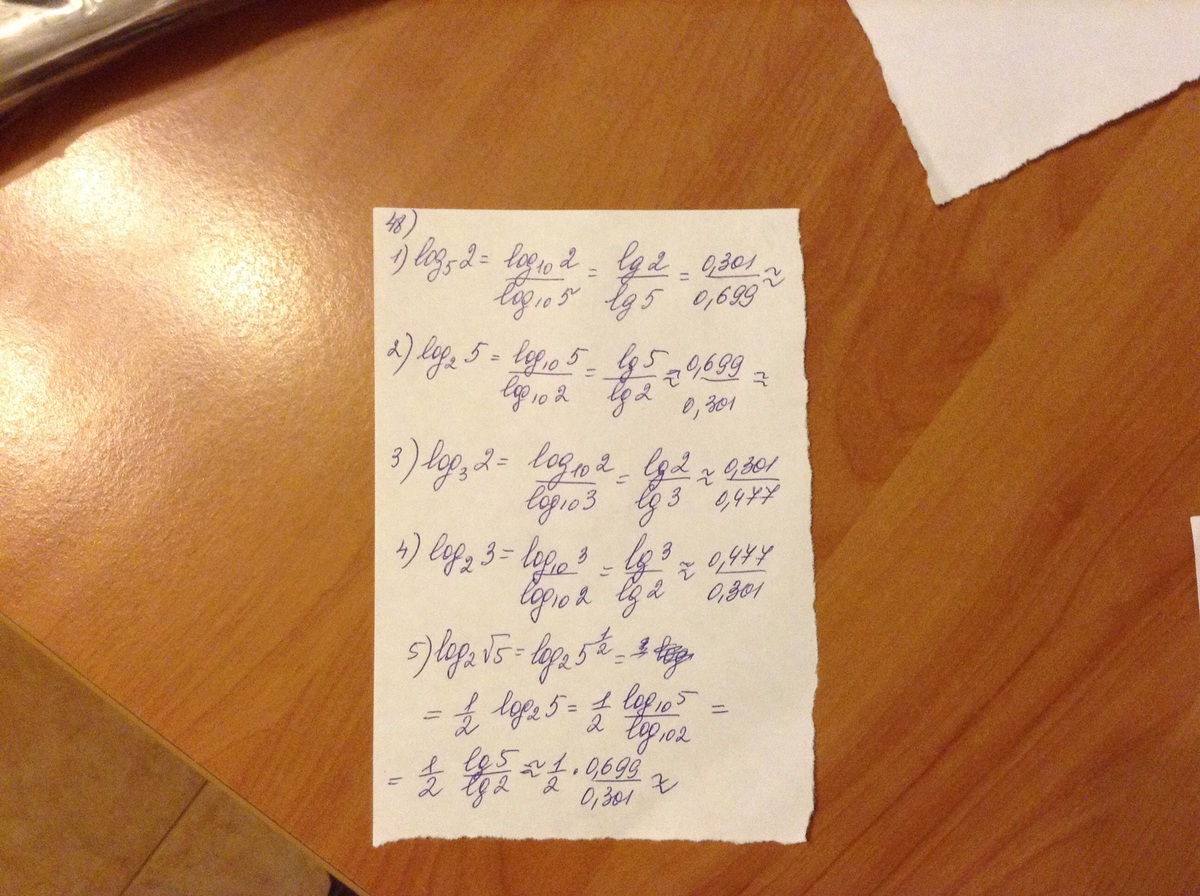 48)
1) log₅2 = log₁₀2 / log₁₀5 = lg2 / lg5 = 0,301 / 0,699 ≈
2) log₂5 = log₁₀5 / log₁₀2 = lg5 / lg2 ≈ 0,699 / 0,301 ≈
3) log₃2 = log₁₀2 / log₁₀3 = lg2 / lg3 ≈ 0,301 / 0,477
4) log₂3 = log₁₀3 / log₁₀2 = lg3 / lg2 ≈ 0,477 / 0,301
5) log₂√5 = log₂5^(1/2) =
= 1/2 log₂5 = 1/2 log₁₀5 / log₁₀2 =
= 1/2 lg5 / lg2 ≈ 1/2 · 0,699 / 0,301 ≈